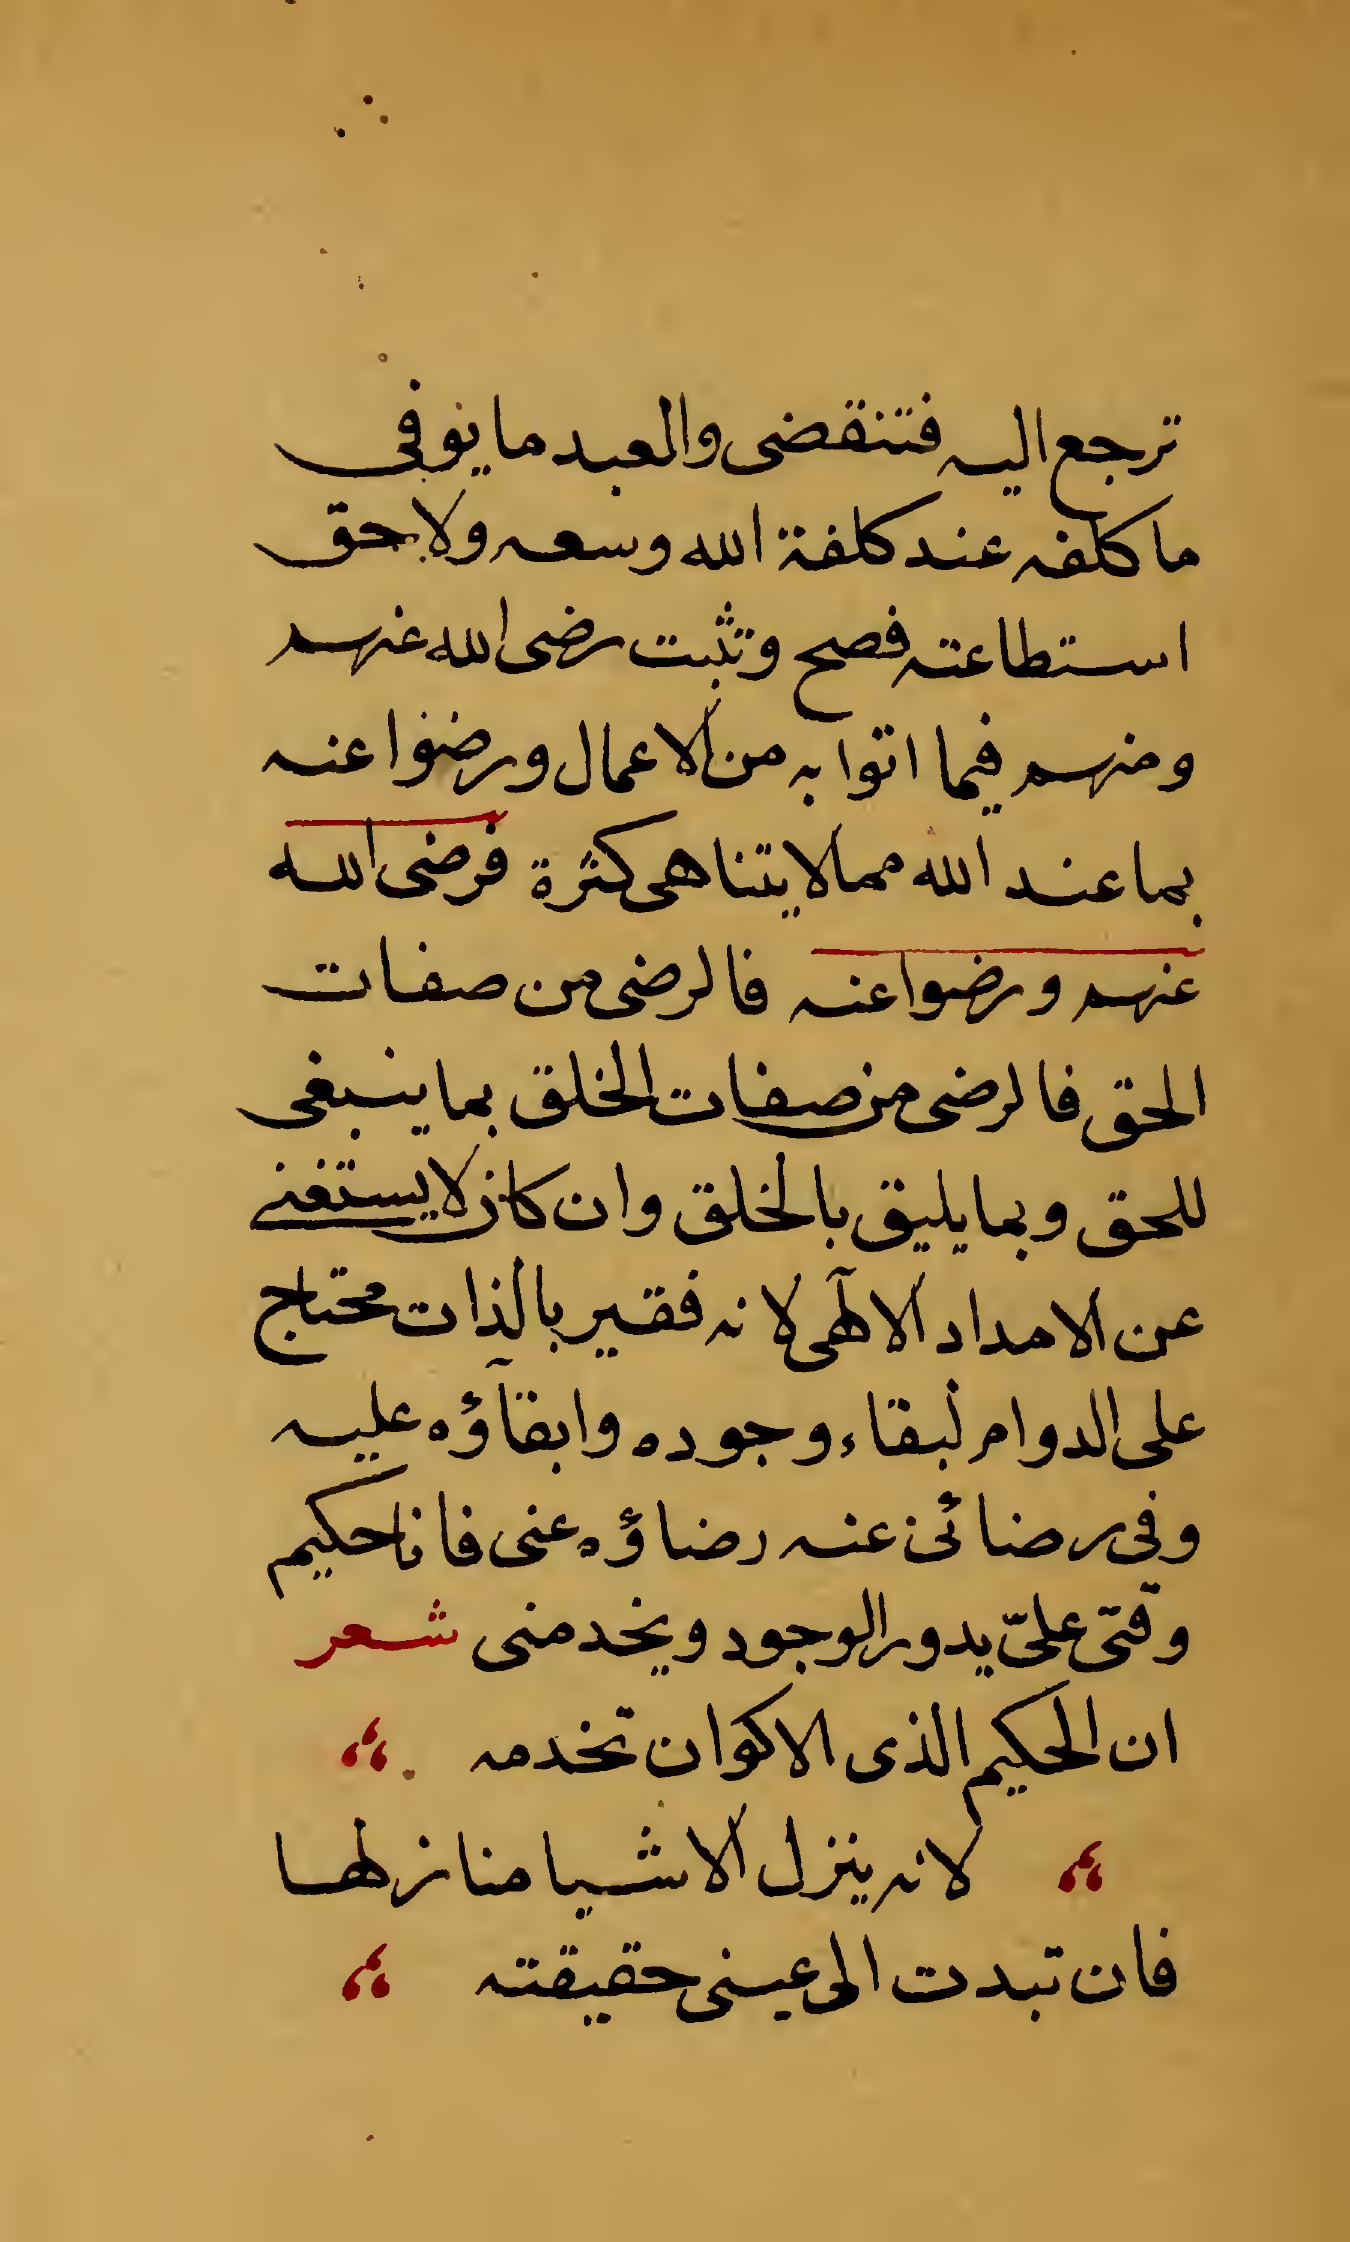 ترجع اليه فتنقضى والعبد ما يوفى
ما كلفه عند كلفة الله وسعه ولا حق
استطاعته فصح وثبت رضى الله عنهم
ومنهم فيما اتوا به من الاعمال ورضوا عنه
بما عند الله مما لا يتناهى كثرة فرضى الله
عنهم ورضوا عنه فالرضى من صفات
الحق فالرضى من صفات الخلق بما ينبغى
للحق وبما يليق بالخلق وان كان لا يستغنى
عن الامداد الآلهى لانه فقير بالذات محتاج
على الدوام لبقاء وجوده وابقآؤه عليه
وفى رضائى عنه رضاؤه عنى فانا حكيم
وقتى علىّ يدور الوجود ويخدمنى شعر
ان الحكيم الذى الاكوان تخدمه
لانه ينزل الاشيا منازلها
فان تبدت الى عينى حقيقته